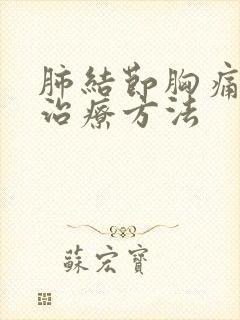 肺結節胸痛
治療方法
蘇宏寶